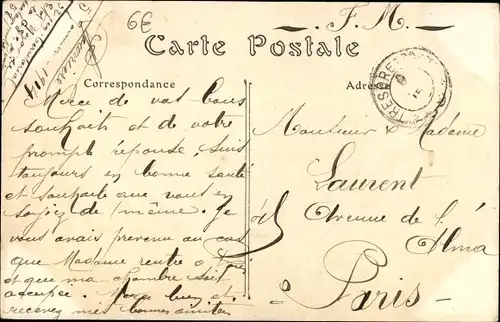 6€
F. M.
Carte Postale
Correspondance
Adresse
TRESOR ET POSTES
Merci de vos bons
souhaits et de votre
prompte réponse, suis
toujours en bonne santé
et souhaite que vous en
soyiez de même. Je
vous avais prévenu au cas
que Madame rentre à Paris
et que ma chambre soit
occupée. et
recevez mes bonnes amitiés
Monsieur & Madame
Laurent
Avenue de l'
Alma
Paris